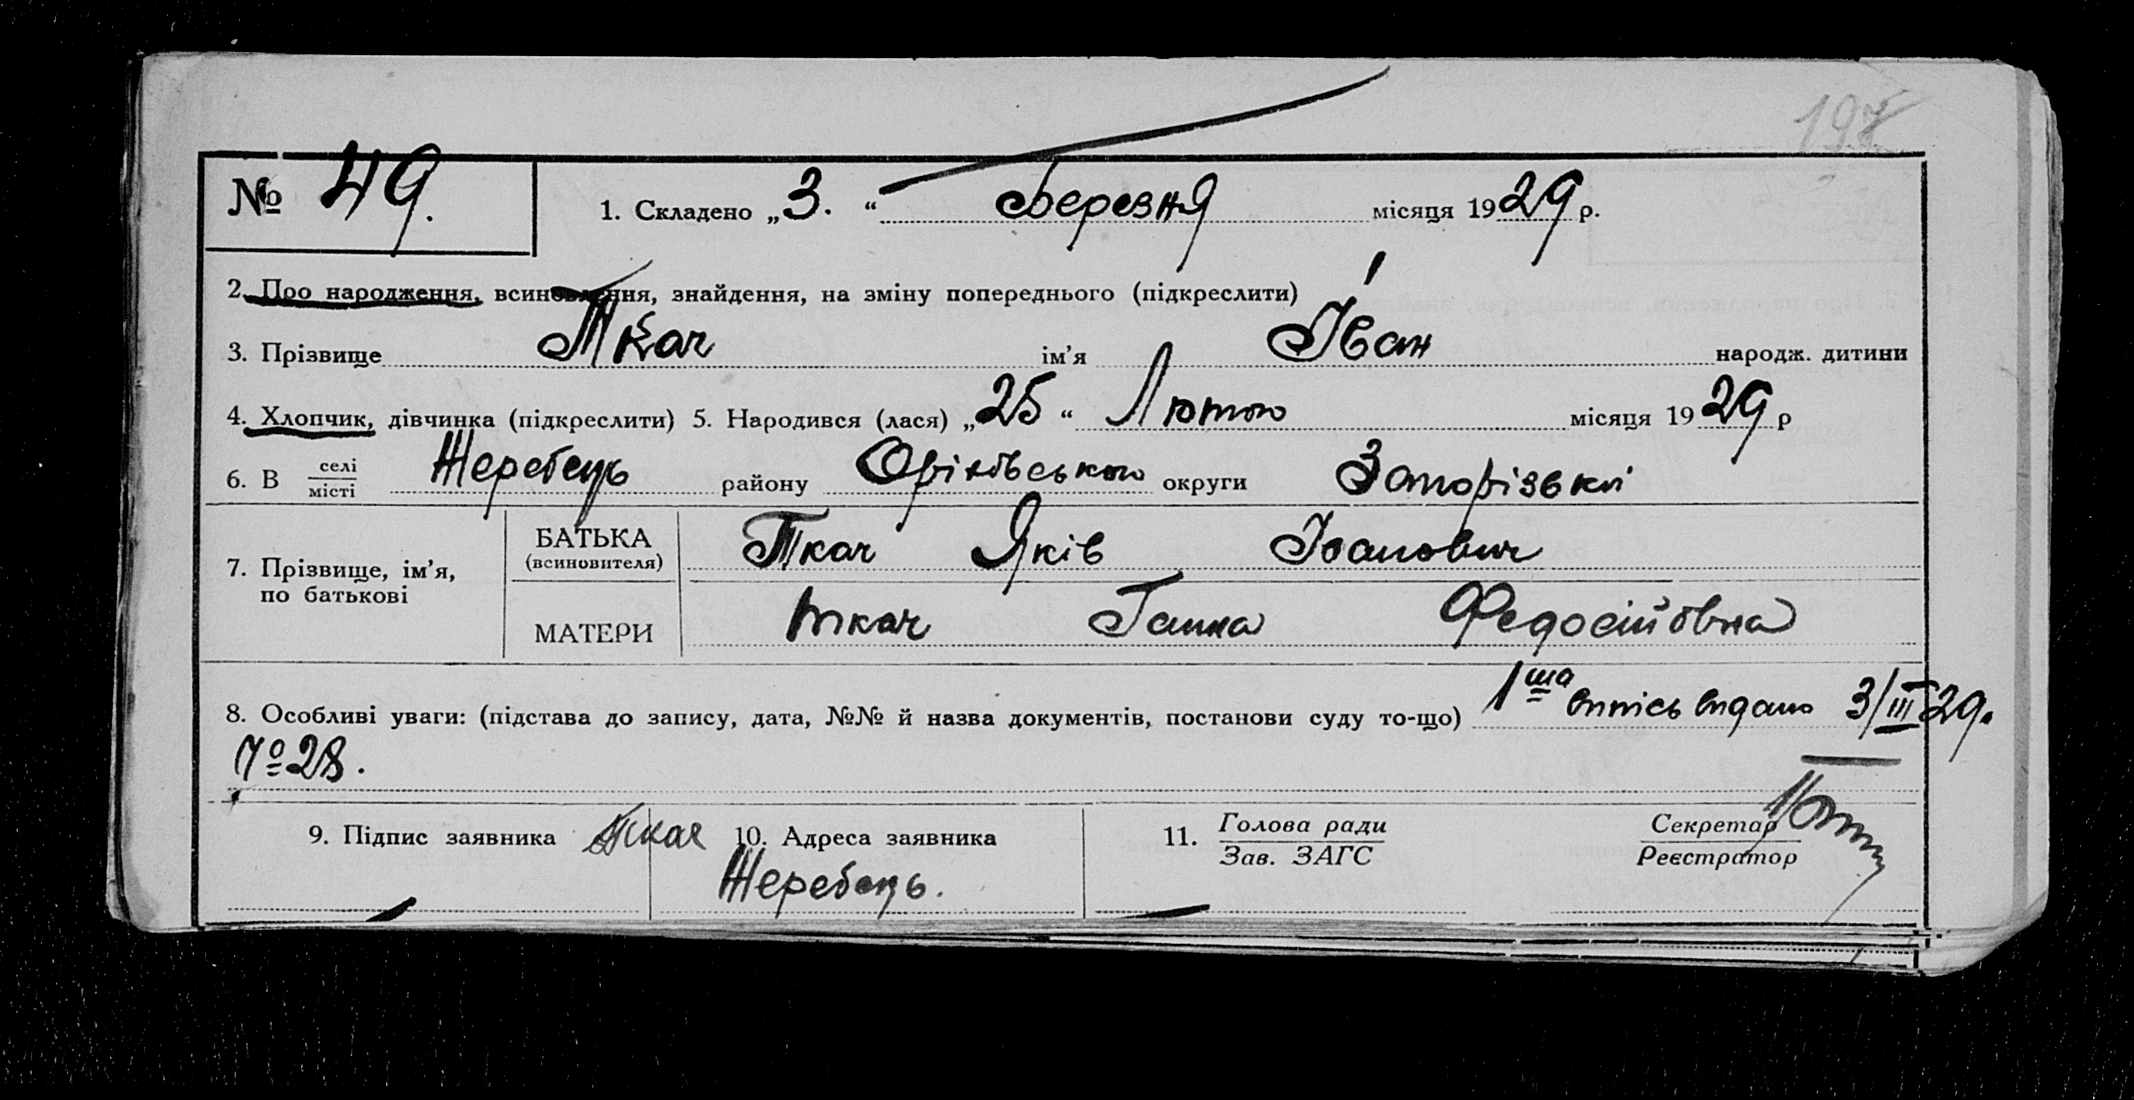 197
№ 49. 1. Складено „3.“ Березня місяця 1929 р.
2. Про народження, всиновлення, знайдення, на зміну попереднього (підкреслити)
3. Прізвище Ткач ім'я Іван народж. дитини
4. Хлопчик, дівчинка (підкреслити) 5. Народився (лася) „25“ Лютого місяця 1929 р
6. В селі місті Жеребець району Оріхівського округи Запорізької
7. Прізвище, ім'я, по батькові
БАТЬКА (всиновителя) Ткач Яків Іванович
МАТЕРИ Ткач Ганна Федосіївна
8. Особливі уваги: (підстава до запису, дата, №№ й назва документів, постанови суду то-що) 1ша випись видано 3/III 29.
№ 28.
9. Підпис заявника Ткач 10. Адреса заявника 11. Голова ради Секретар
Зав. ЗАГС Реєстратор
Жеребець.